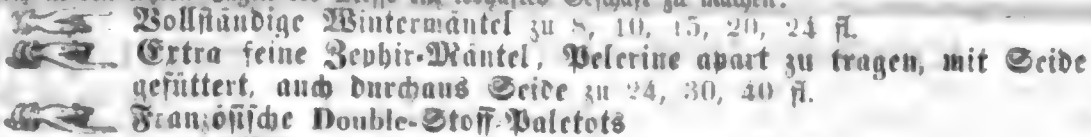 Vollständige Wintermäntel zu 8, 10, 15, 20, 24 fl.
Extra feine Zephir-Mäntel, Pelerine apart zu tragen, mit Seide
gefüttert, auch durchaus Seide zu 24, 30, 40 fl.
Französische Double-Stoff-Paletots